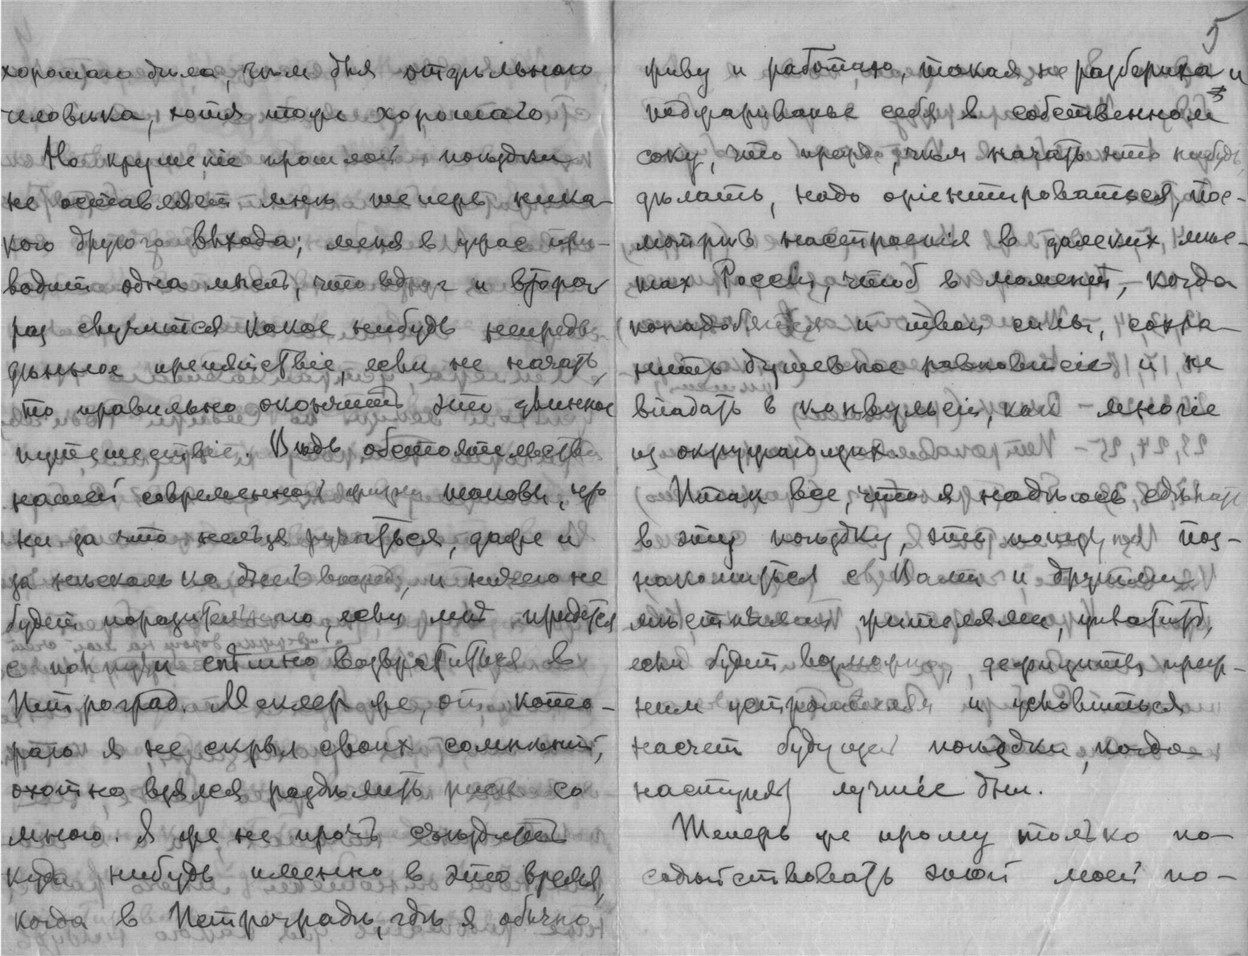 хорошаго дѣла, чѣм для отдѣльнаго
человѣка, хотя тоже хорошаго.
Но крушеніе прошлой поѣздки
не оставляет мнѣ теперь ника-
кого другого выхода; меня в ужас при-
водит одна мысль, что вдруг и второй
раз случится какое нибудь непредви-
дѣнное препятствіе, если не начать,
то правильно окончить это длинное
путешествіе. Вѣдь обстоятельства
нашей современной жизни таковы, что
ни за что нельзя ручаться, даже и
за нѣсколько дней вперед, и ничего не
будет поразительнаго, если мнѣ придется
с пути спѣшно возвратиться в
Петроград. Меклер же, от кото-
раго я не скрыл своих сомнѣній,
охотно взялся раздѣлить риск со
мною. Я же не прочь съѣздить
куда нибудь именно в это время,
когда в Петроградѣ, гдѣ я обычно
5
живу и работаю, такая неразбериха и
поджариванье себя в собственном
соку, что прежде, чѣм начать что нибудь
дѣлать, надо оріентироваться, пос-
мотрѣв настроенія в далеких мѣс-
тах Россіи, чтоб в момент, когда
понадобятся и твои силы, сохра-
нить душевное равновѣсіе и не
впадать в конвульсіи, как многіе
из окружающих.
Итак все, что я надѣюсь сдѣлать
в эту поѣздку, это поз-
накомиться с Вами и другими
мѣстными жителями,
если будет возможно, дефицит преж-
ним устроителям и условиться
насчет будущей поѣздки, когда
наступят лучшіе дни.
Теперь же прошу только по-
содѣйствовать этой моей по-